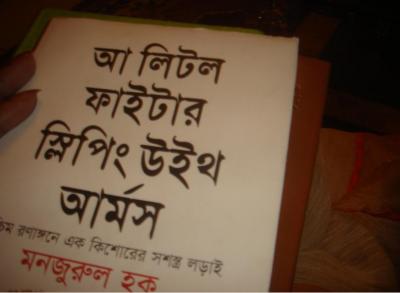 আ লিটল
ফাইটার
স্লিপিং উইথ
আর্মস
রণাঙ্গনে এক কিশোরের সশস্ত্র লড়াই
মনজুরুল হক